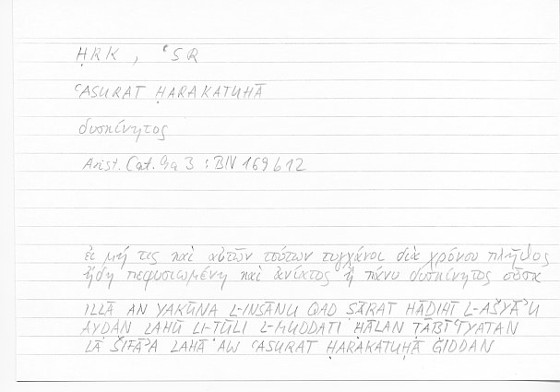 ḤRK , ʿSR
ʿASURAT ḤARAKATUHĀ
δυσκίνητος
Arist. Cat. 9a 3 : BN 169b12
εἰ μή τις καὶ αὐτῶν τούτων τυγχάνοι διὰ χρόνου πλῆθος
ἤδη πεφυσιωμένη καὶ ἀνίατος ἢ πάνυ δυσκίνητος οὖσα
ILLĀ AN YAKŪNA L-INSĀNU QAD ṢĀRAT HĀḎIHĪ L-AŠYĀʾU
AYḌAN LAHŪ LI-ṬŪLI L-MUDDATI ḤĀLAN ṬABĪʿĪYATAN
LĀ ŠIFĀʾA LAHĀ AW ʿASURAT ḤARAKATUHĀ ǦIDDAN